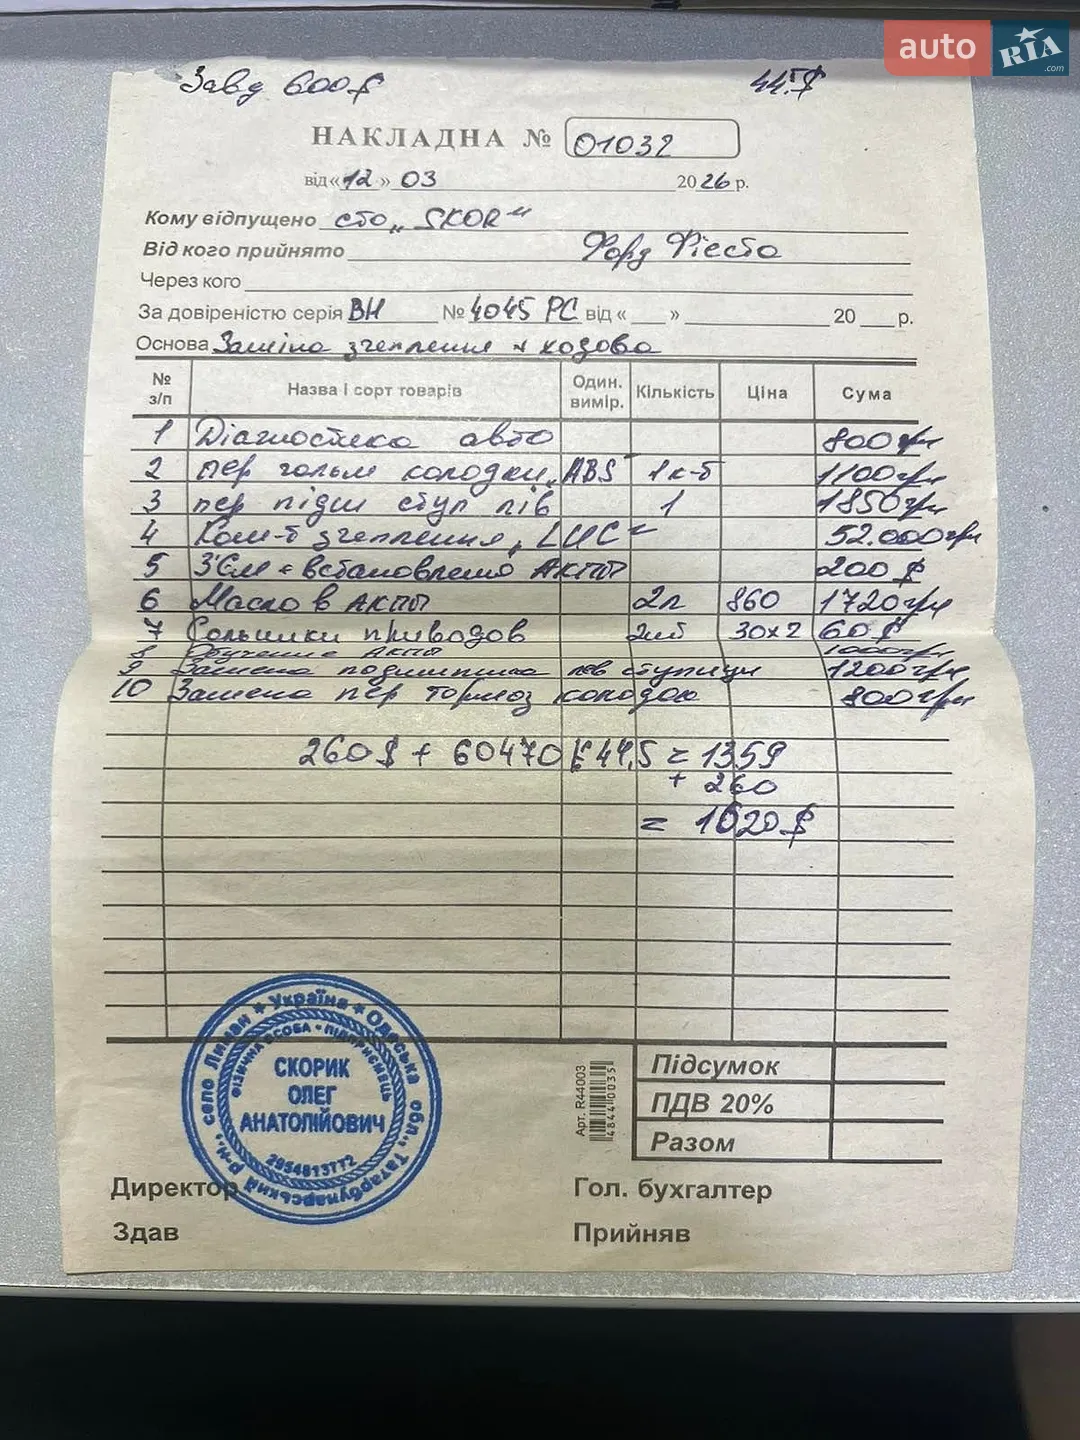 auto RIA.com
Завд 600$ 44.5$
НАКЛАДНА № 01032
від «12» 03 2026 р.
Кому відпущено сто „SKOR"
Від кого прийнято Форд Фієста
Через кого
За довіреністю серія ВН № 4045 РС від « » 20 р.
Основа Заміна зчеплення + ходова
№ з/п Назва і сорт товарів Один. вимір. Кількість Ціна Сума
1 Діагностика авто 800грн
2 пер гальм колодки „ABS 1к-т 1100грн
3 пер підш ступ лів 1 1850грн
4 Ком-т зчеплення „LUC" 52.000грн
5 З'єм + встановлено АКПП 200$
6 Масло в АКПП 2л 860 1720грн
7 Сольники приводов 2шт 30х2 60$
8 Обучение АКПП 1000грн
9 Замена подшипника лев ступицы 1200грн
10 Замена пер тормоз колодок 800грн
260$ + 60470 : 44,5 = 1359
+ 260
= 1620$
Україна * Одеська обл., Татарбунарський р-н., село Лиман *
ФІЗИЧНА ОСОБА - ПІДПРИЄМЕЦЬ
СКОРИК
ОЛЕГ
АНАТОЛІЙОВИЧ
2954813772
Арт. R44003
Підсумок
ПДВ 20%
Разом
Директор Гол. бухгалтер
Здав Прийняв